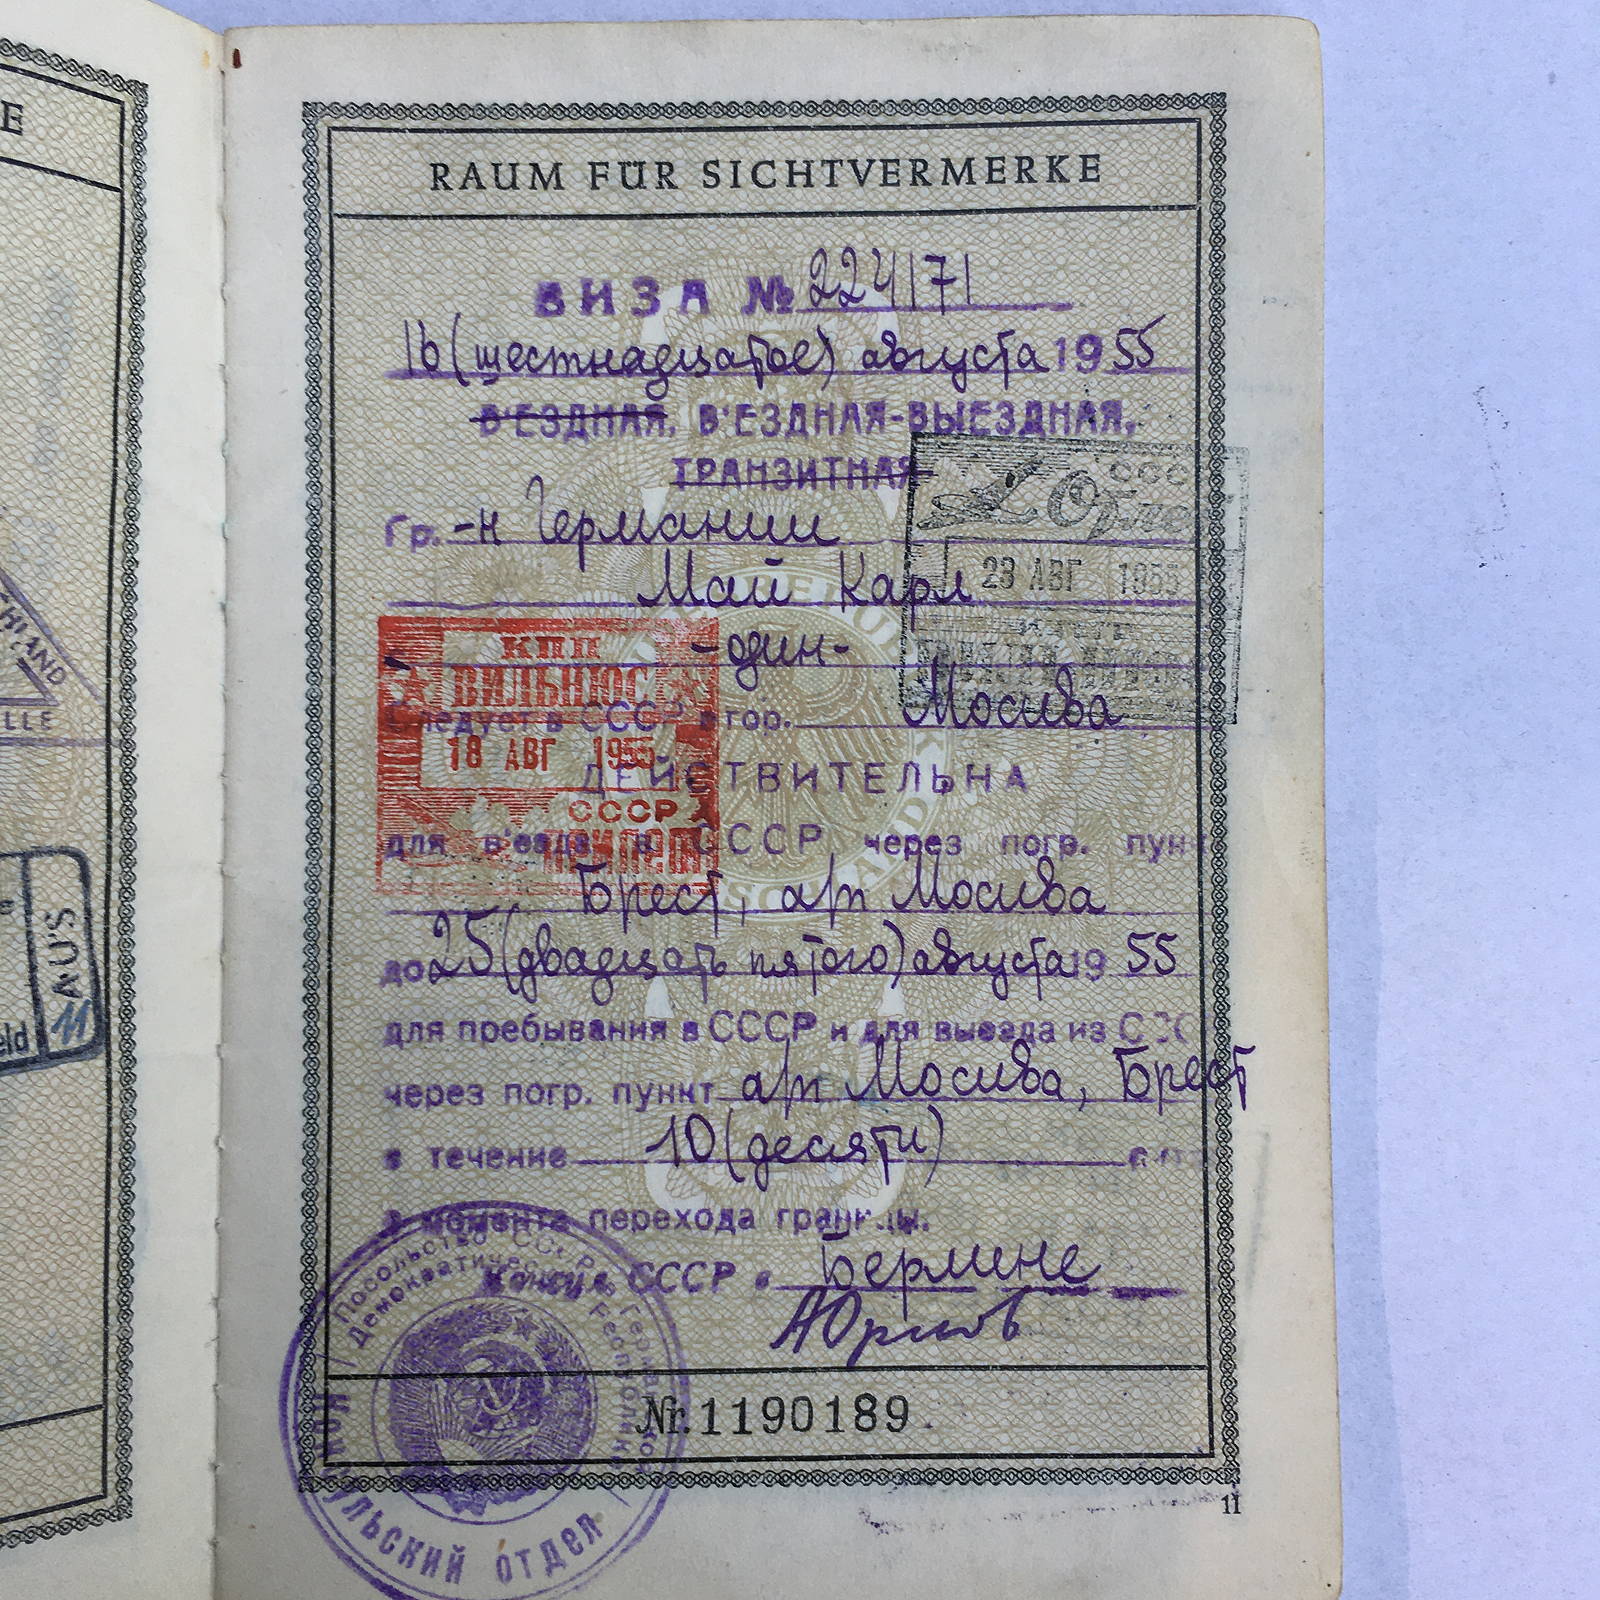 E
HLAND
LLE
AUS
11
eld
RAUM FÜR SICHTVERMERKE
ВИЗА № 224171
16 (шестнадцатое) августа 1955
В'ЕЗДНАЯ, В'ЕЗДНАЯ-ВЫЕЗДНАЯ,
ТРАНЗИТНАЯ
Гр.-н Германии
Май Карл
-один-
Следует в СССР в гор. Москва
ДЕЙСТВИТЕЛЬНА
для в'езда в СССР через погр. пун
Брест, а/п Москва
до 25 (двадцать пятого) августа 1955
для пребывания в СССР и для выезда из ССС
через погр. пункт а/п Москва, Брест
в течение 10 (десяти)
с момента перехода границы.
Консул СССР в Берлине
АЮрков
Nr. 1190189
11
СССР
23 АВГ 1955
КПП
ВИЛЬНЮС
18 АВГ 1955
СССР
Посольство СССР в Германской
Демократической Республике
Консульский отдел